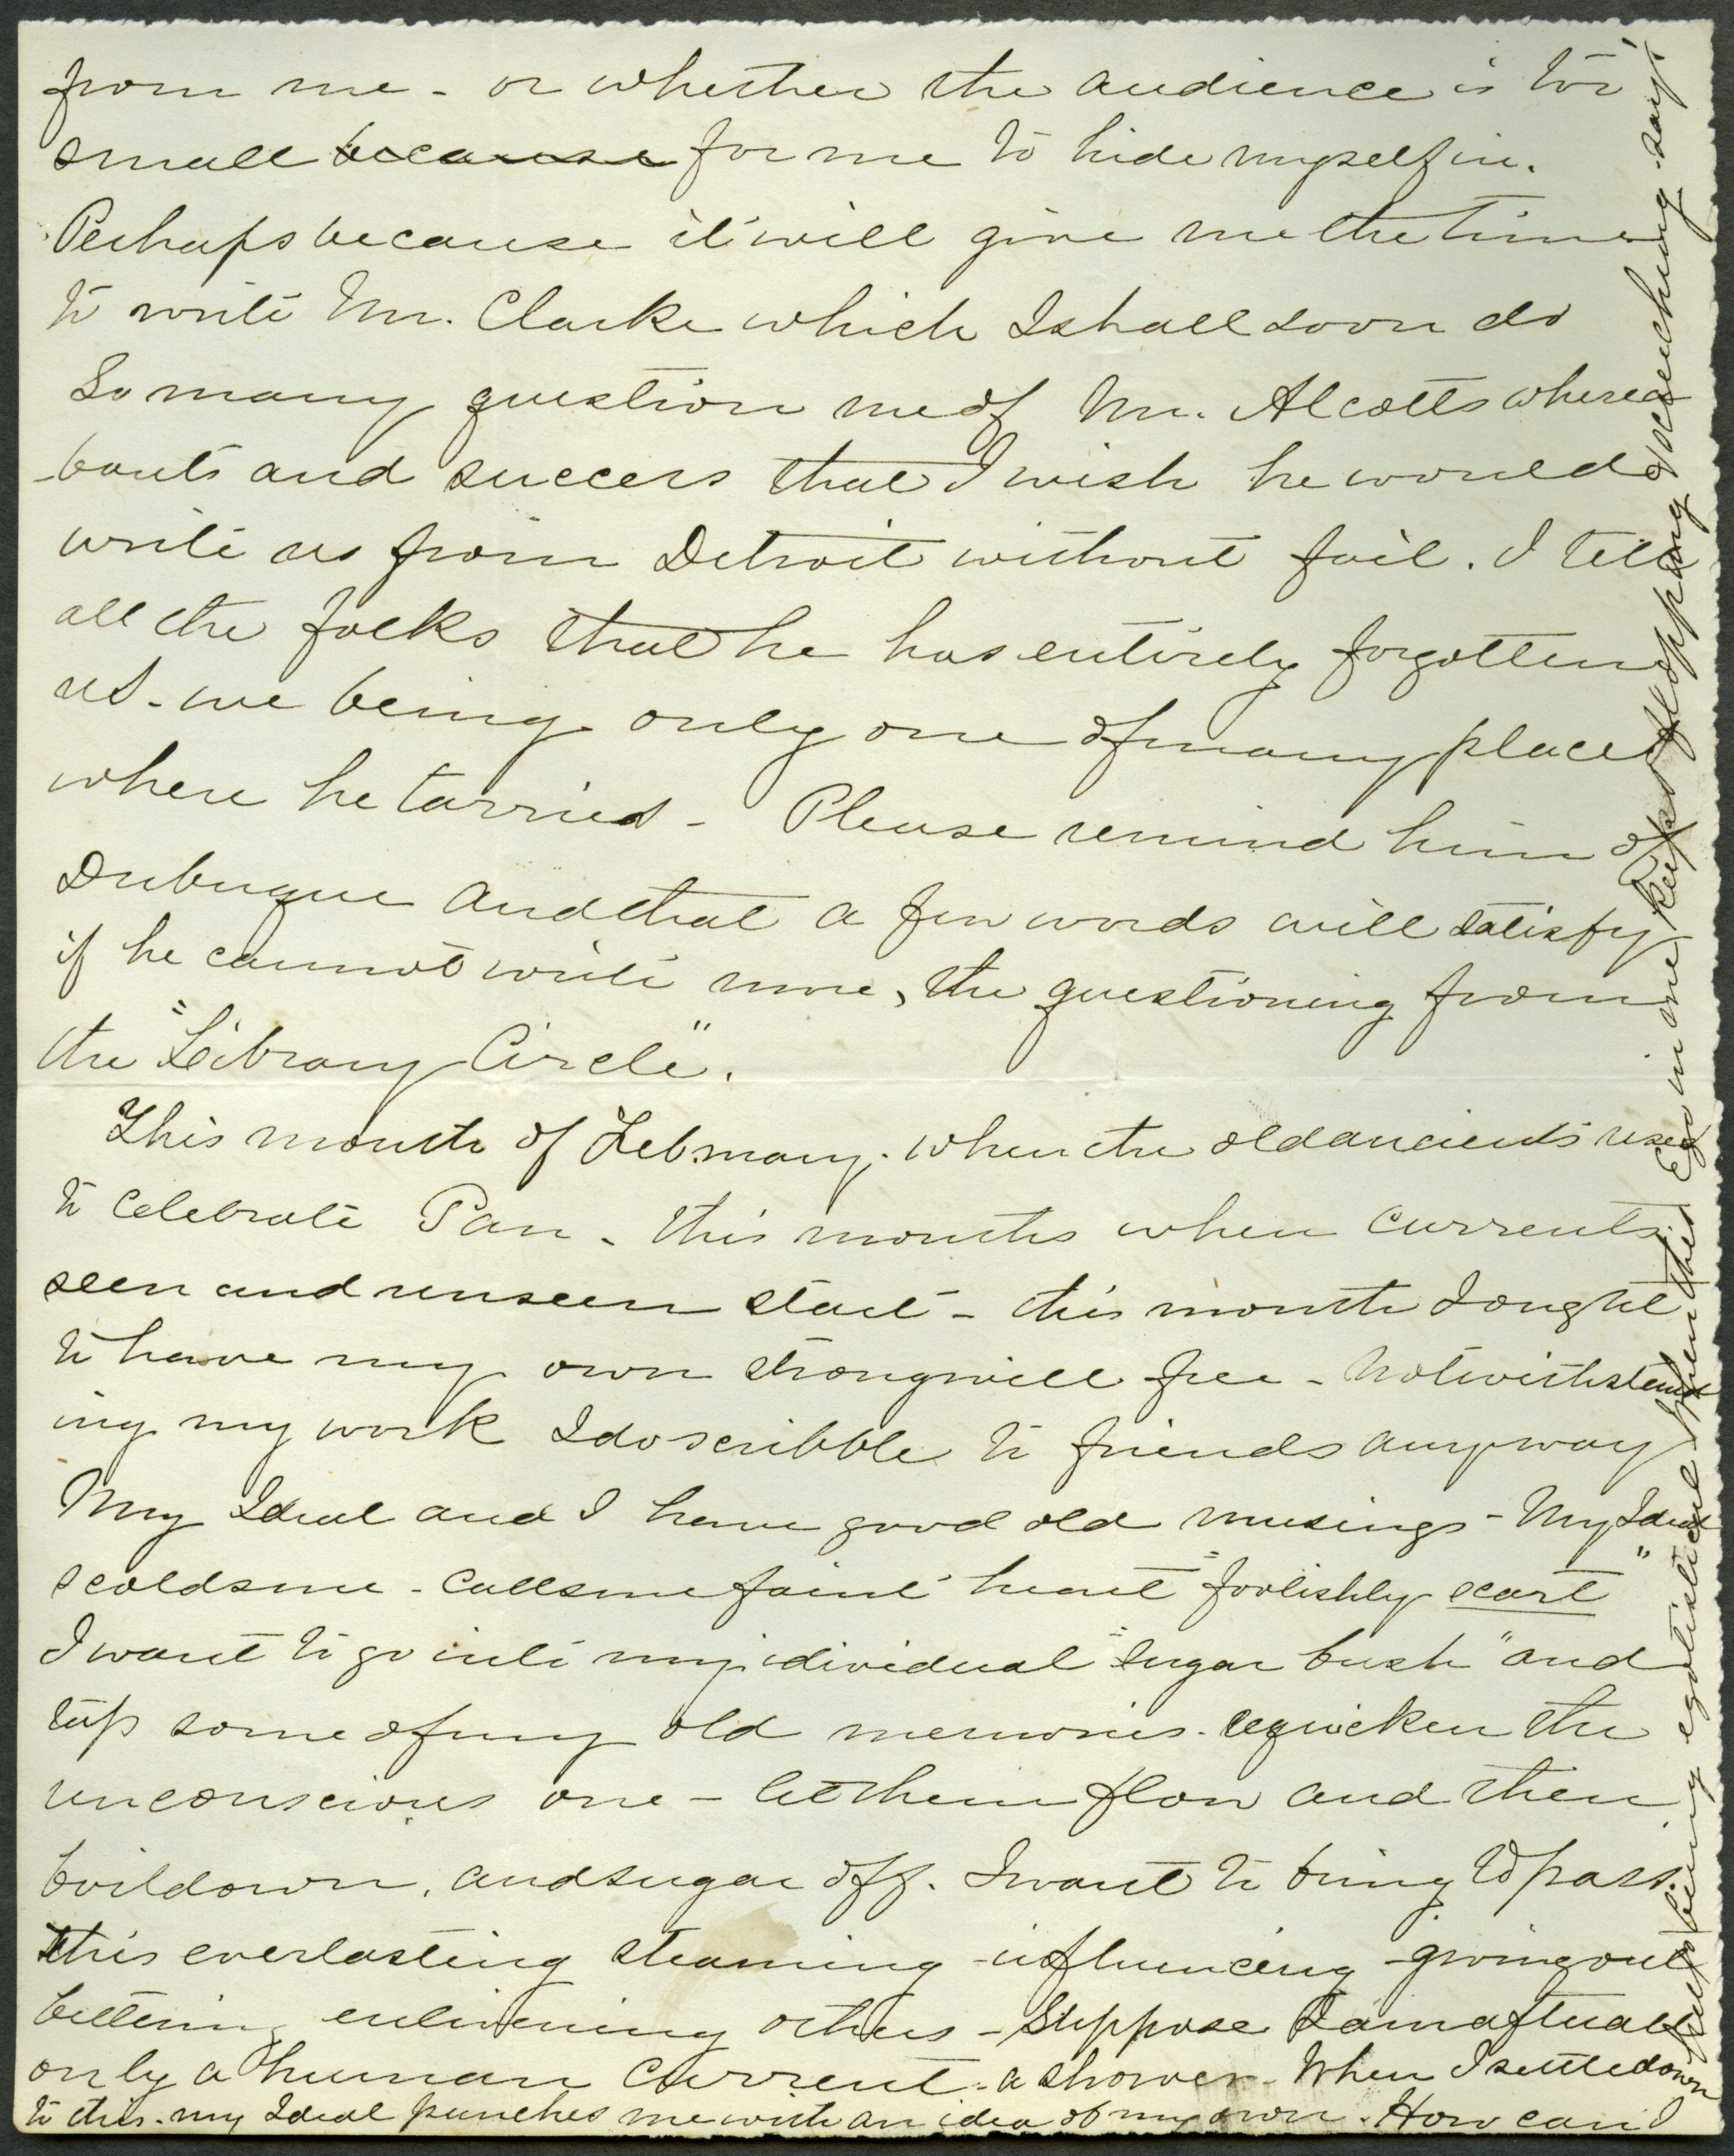 from me - or whether the audience is too
small because for me to hide myself in.
Perhaps because it will give me the time
to write Mr. Clarke which I shall soon do
So many question me of Mr. Alcotts wherea
-bouts and success that I wish he would
write us from Detroit without fail. I tell
all the folks that he has entirely forgotten
us - we being only one of many places
where he tarried - Please remind him of
Dubuque and that a few words will satisfy
if he cannot write more, the questioning from
the "Library Circle".
This month of February. when the old ancients used
to celebrate Pan - this months when currents
seen and unseen start - this month I ought
to have my own strong will free - Notwithstand
ing my work I do scribble to friends anyway
My Ideal and I have good old musings - My Ideal
scolds me - calls me faint heart "foolishly scart"
I want to go into my idividual "sugar bush" and
tap some of my old memories. requicken the
unconscious one - let them flow and then
boil down, and sugar off. I want to bring to pass.
this everlasting steaming - influencing - giving out
bettering enlivening others - Suppose I am aftuall
only a human current - a shower - When I settle down
to this - my Ideal punches me with an idea of my own. How can I
help being egotistical when this Ego in one keeps flopping & screeching - says